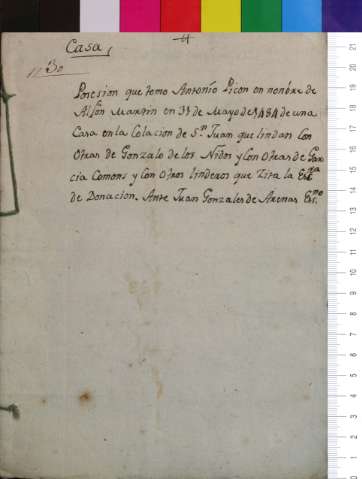 Casa,
nº 30
Posesion que tomo Antonio Picon en nonbre de
Alfon Martin en 31 de Mayo de 1484 de una
Casa en la Colacion de Sn. Juan que lindan con
Otras de Gonzalo de los Nidos y con Otras de Gar
cia Comons y con Otros linderos que Zita la Escra
de Donacion. Ante Juan Gonzales de Arenas Esno